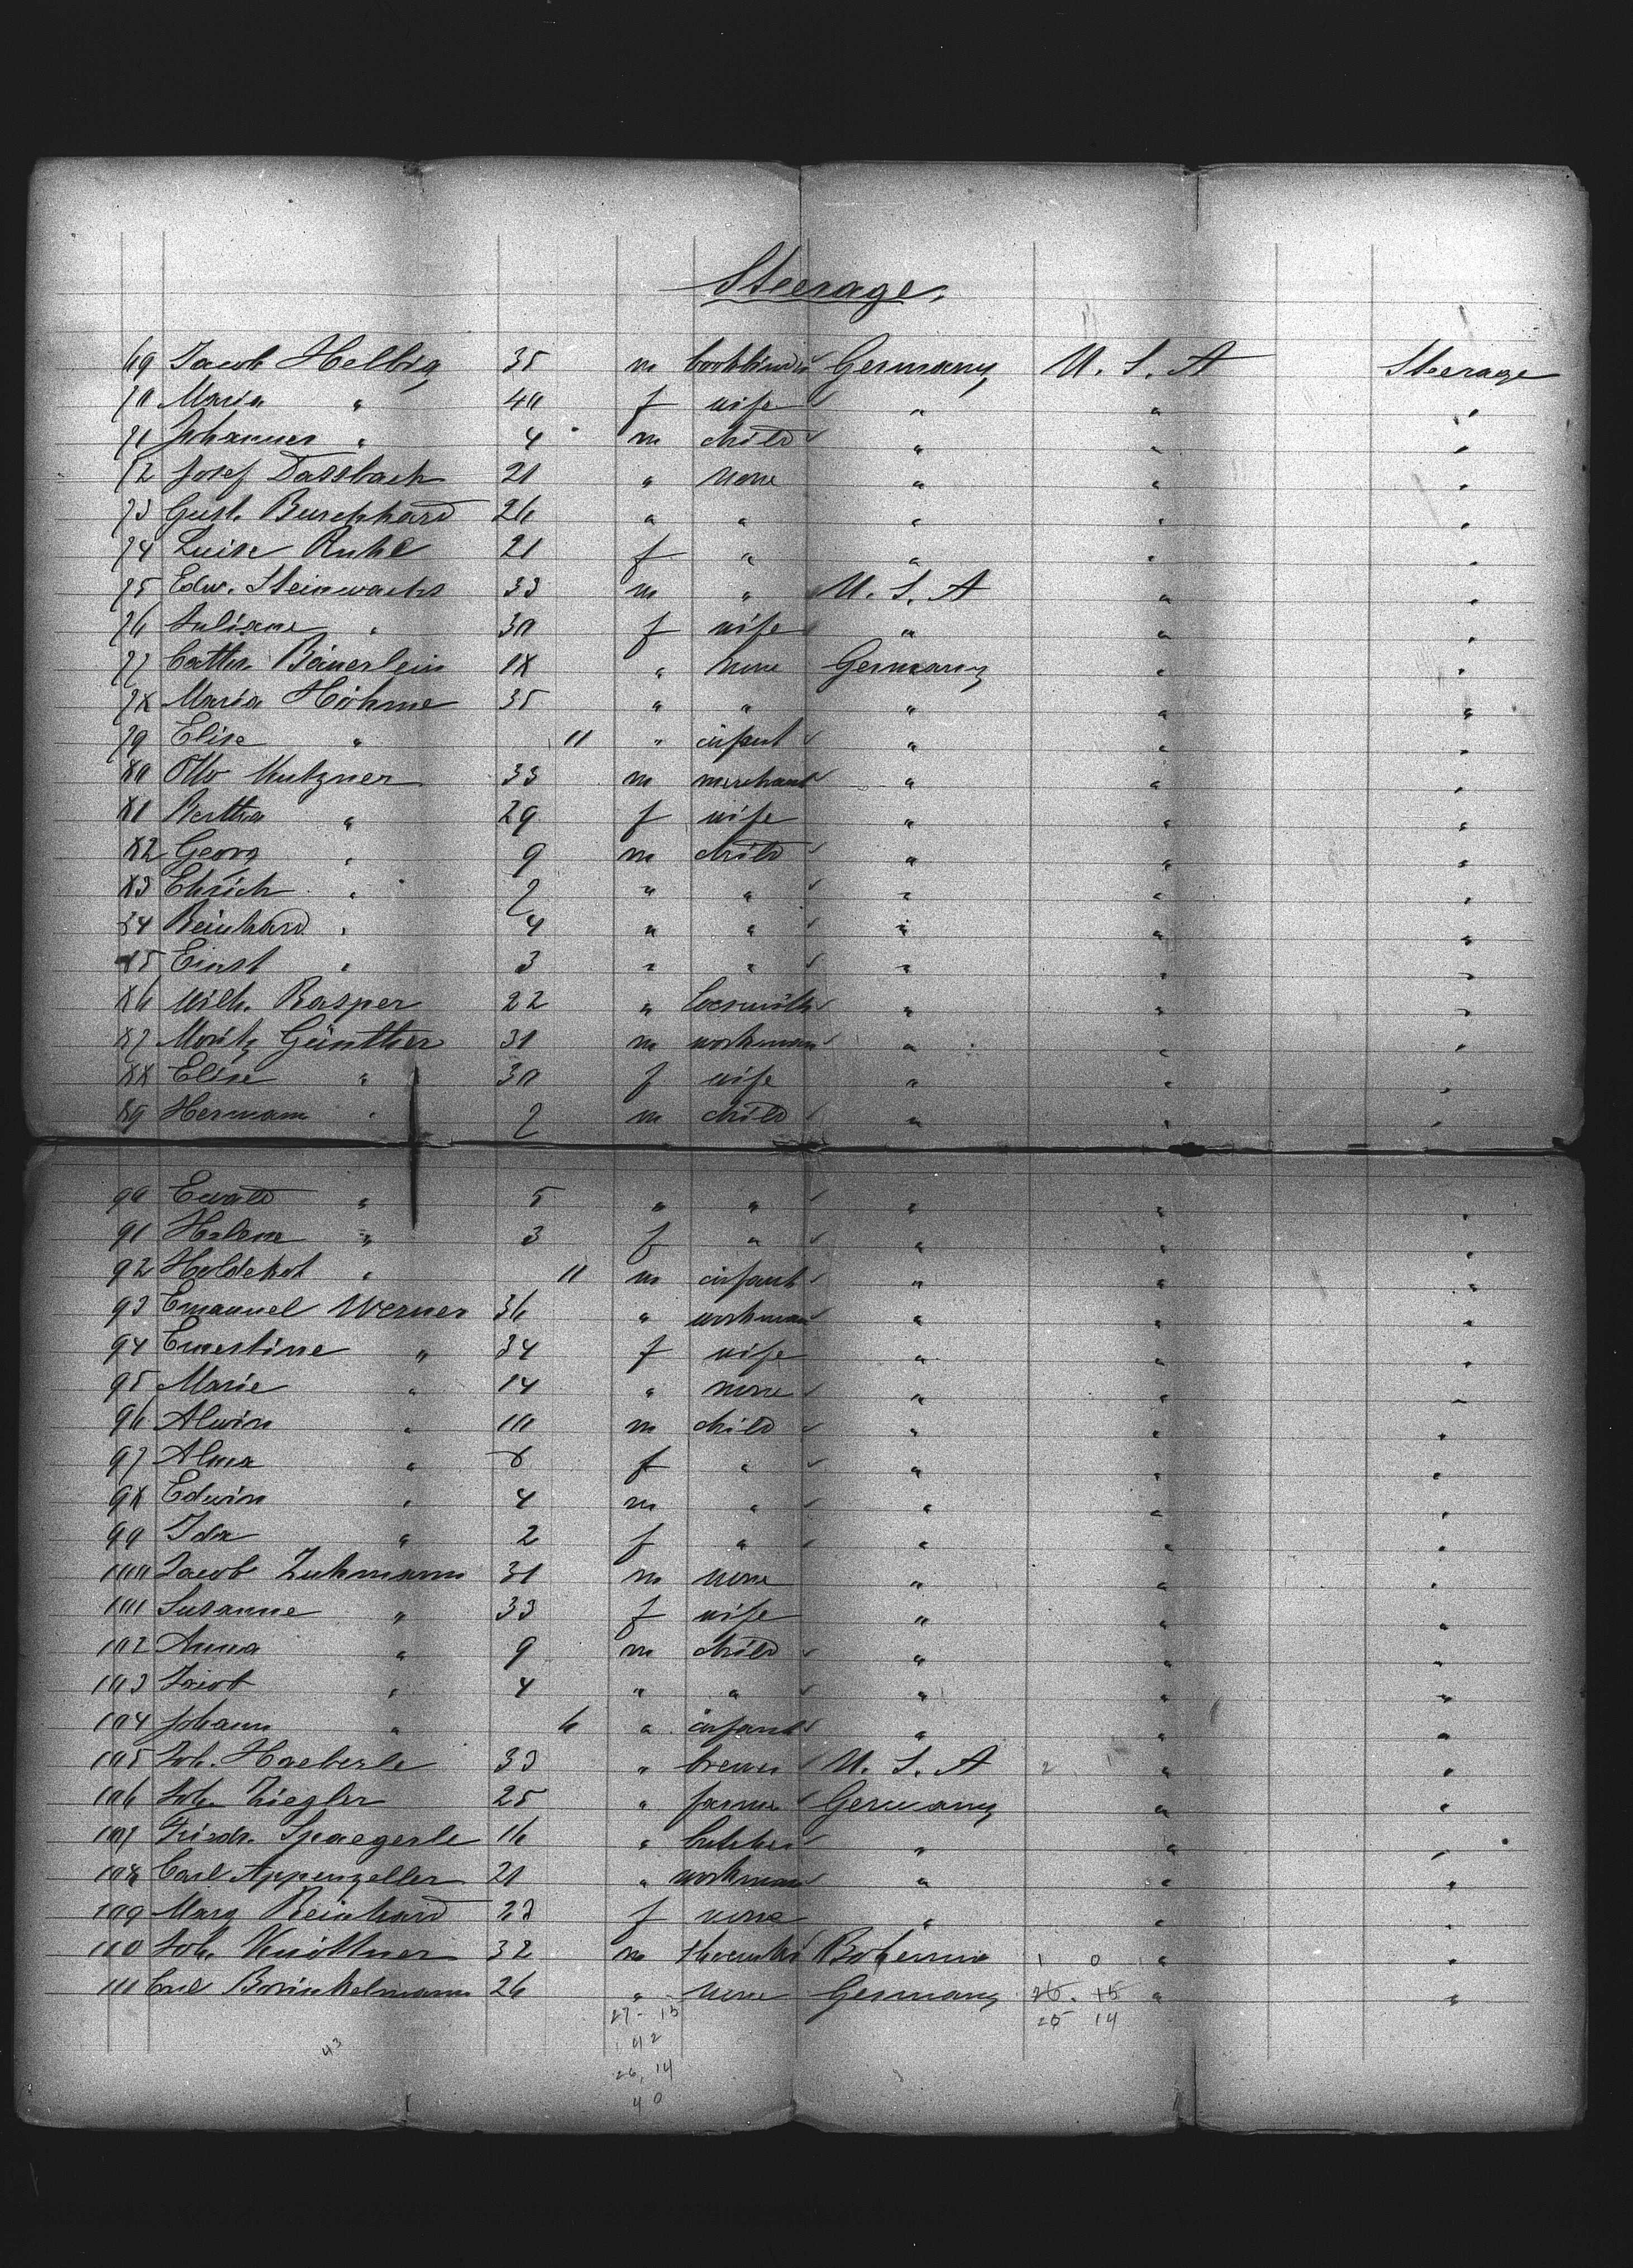 Steerage.
69 Jacob Helbig 35 m bookbinder Germany U. S. A Steerage
70 Maria " 40 f wife " " "
71 Johannes " 4 m child " " "
72 Josef Dassbach 21 " none " " "
73 Gust. Burchhard 26 " " " " "
74 Luise Ruhl 21 f " " " "
75 Edw. Steinwachs 33 m " U. S. A " "
76 Juliane " 30 f wife " " "
77 Cathr. Bäuerlein 18 " none Germany " "
78 Maria Höhme 35 " " " " "
79 Elise " 11 " infant " " "
80 Otto Kutzner 33 m merchant " " "
81 Bertha " 29 f wife " " "
82 Georg " 9 m child " " "
83 Ehrich " 7 " " " " "
84 Reinhard " 4 " " " " "
85 Ernst " 3 " " " " "
86 Wilh. Rasper 22 " locsmith " " "
87 Moritz Günther 31 m workman " " "
88 Elise " 30 f wife " " "
89 Hermann " 7 m child " " "
90 Ewald " 5 " " " " "
91 Helene " 3 f " " " "
92 " 11 m infant " " "
93 Emanuel Werner 36 " workman " " "
94 Ernestine " 34 f wife " " "
95 Marie " 14 " none " " "
96 Alwin " 10 m child " " "
97 Alma " 8 f " " " "
98 Edwin " 4 m " " " "
99 Ida " 2 f " " " "
100 Jacob Zuhmann 31 m none " " "
101 Susanne " 33 f wife " " "
102 Anna " 9 m child " " "
103 Jacob " 4 " " " " "
104 Johann " 6 " infant " " "
105 Joh. Haeberle 33 " brewer U. S. A 2 " "
106 Joh. Ziegler 25 " farmer Germany " "
107 Friedr. Spaegerle 16 " butcher " " "
108 Carl Appenzeller 21 " workman " " "
109 Marg Reinhard 23 f none " " "
110 Joh. Knöttner 32 m Bohemia 1 0 " "
111 26 " none Germany 26. 15 " "
27 - 15 25 14
43 42
26, 14
40